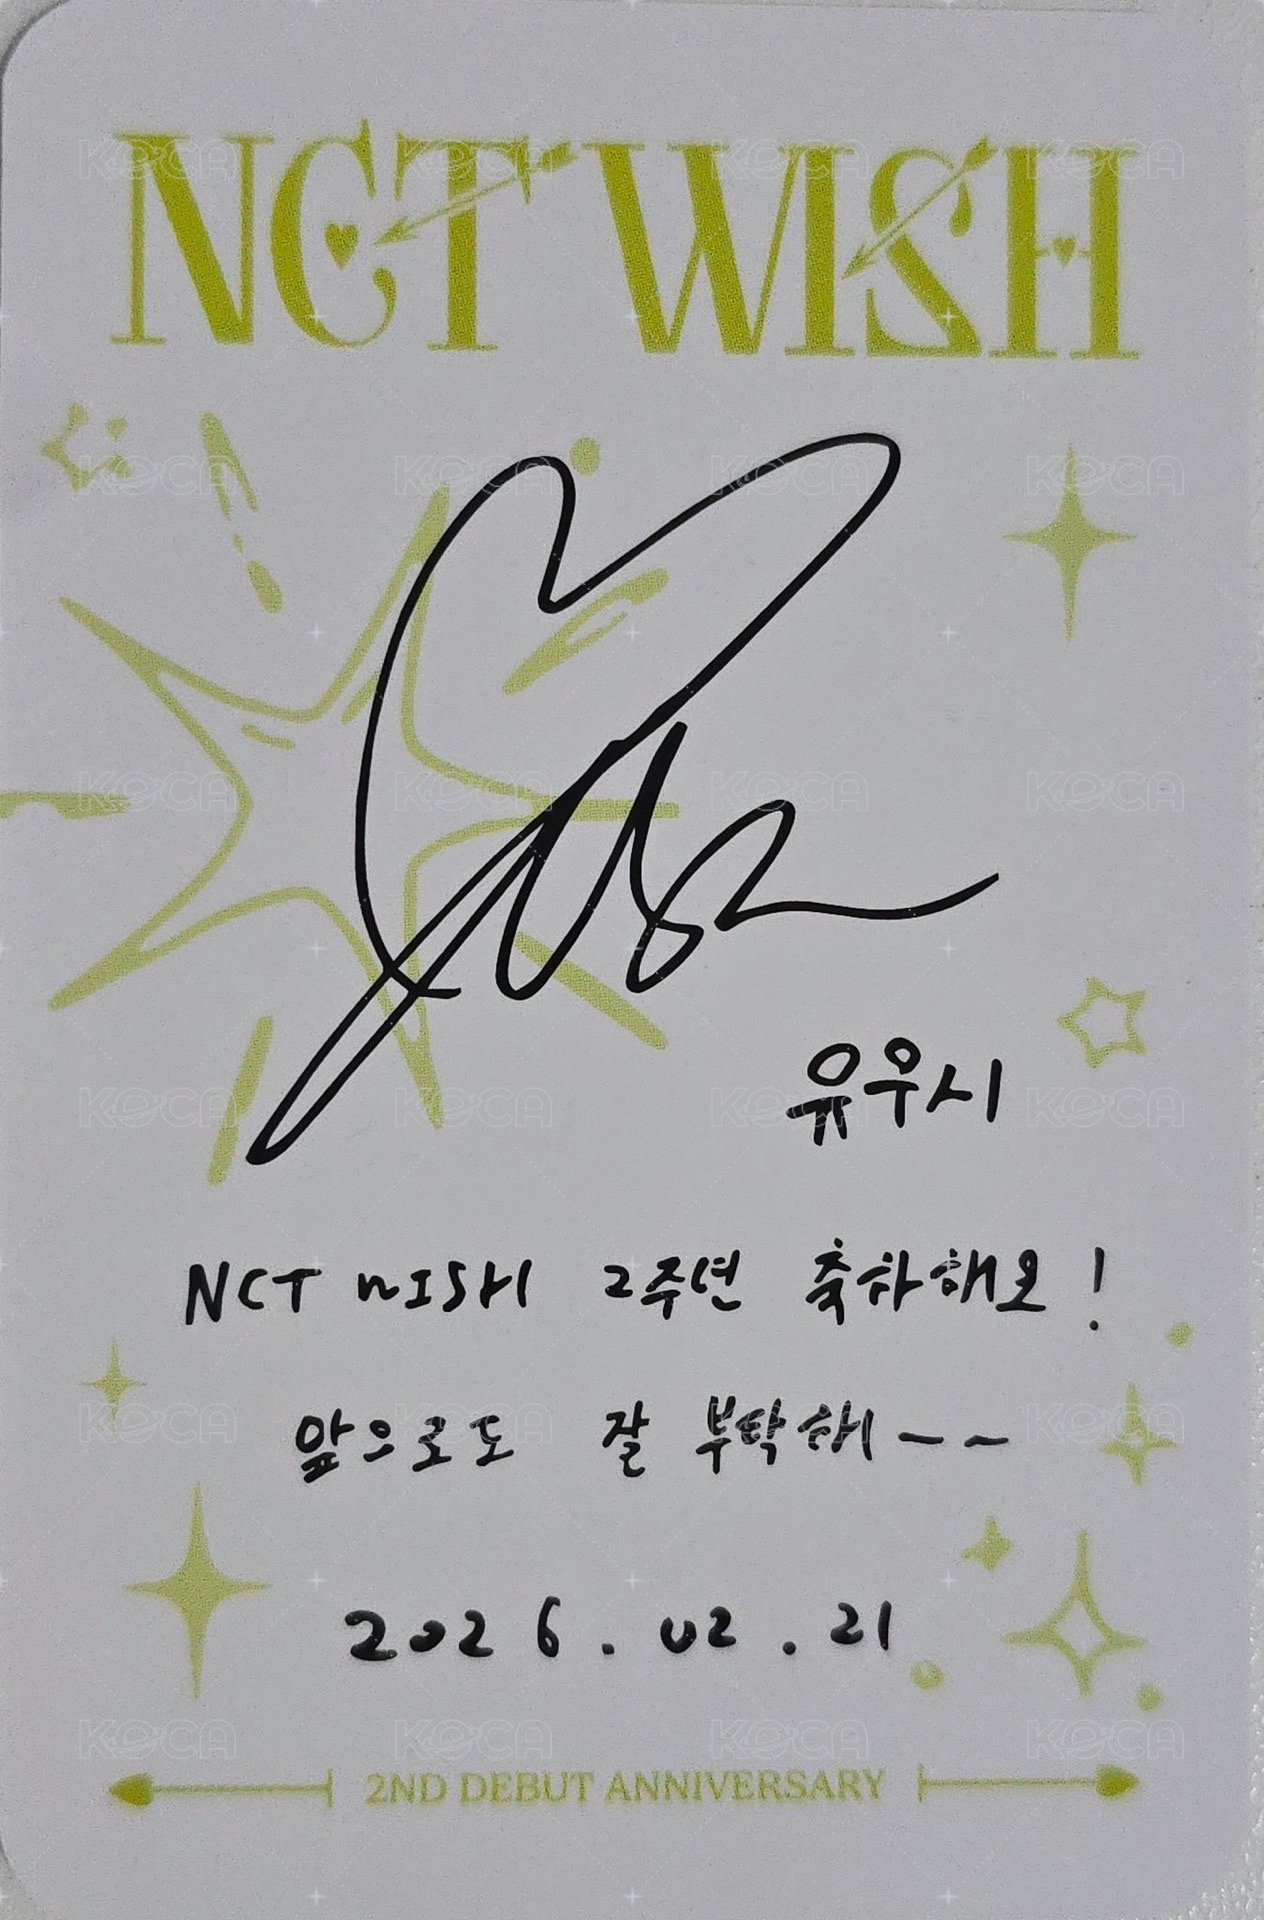 NCT WISH
유우시
NCT WISH 2주년 축하해요!
앞으로도 잘 부탁해~~
2026.02.21
2ND DEBUT ANNIVERSARY
KOCA